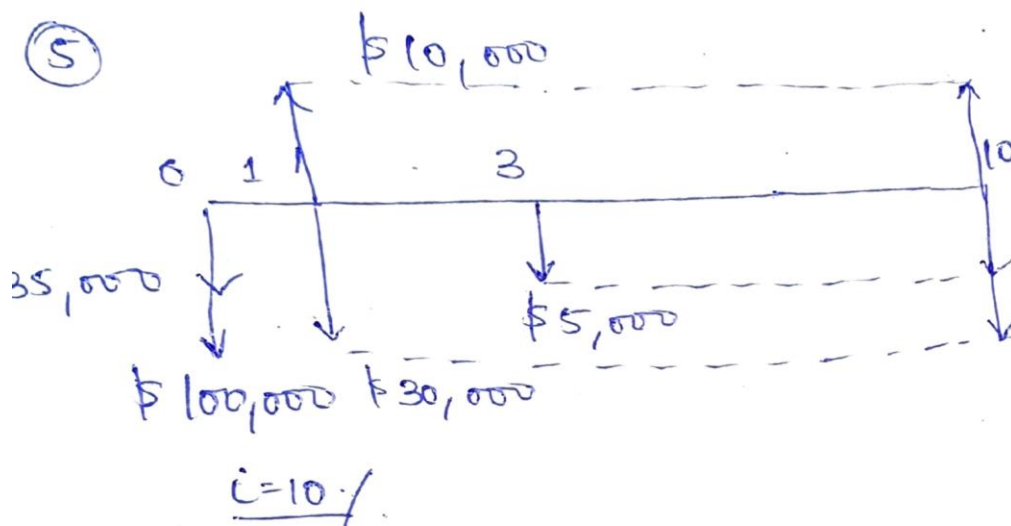 5
$10,000
0 1 3 10
35,000
$5,000
$100,000 $30,000
i=10%